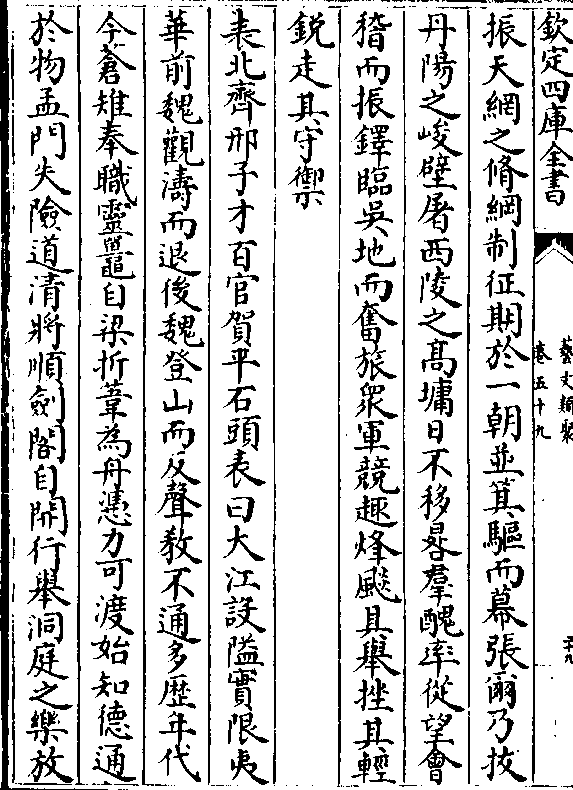 欽定四庫全書
藝文類聚
卷五十九
十九
振天網之脩綱制征期於一朝並箕驅而幕張爾乃拔
丹陽之峻壁屠西陵之髙墉日不移晷羣醜率從望會
稽而振鐸臨吳地而奮旅衆軍競趣烽飈具舉挫其輕
鋭走其守禦
表北齊邢子才百官賀平石頭表曰大江設隘實限夷
華前魏觀濤而退後魏登山而反聲敎不通多歴年代
今蒼雉奉職靈鼉自梁折葦為舟憑力可渡始知德通
於物孟門失險道清將順劍閣自開行舉洞庭之樂放